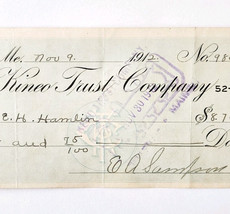 Me. Nov 9. 1912 No. 98
Kineo Trust Company 52-
E. H. Hamlin $87
and 75/100 Do
E A Sampson